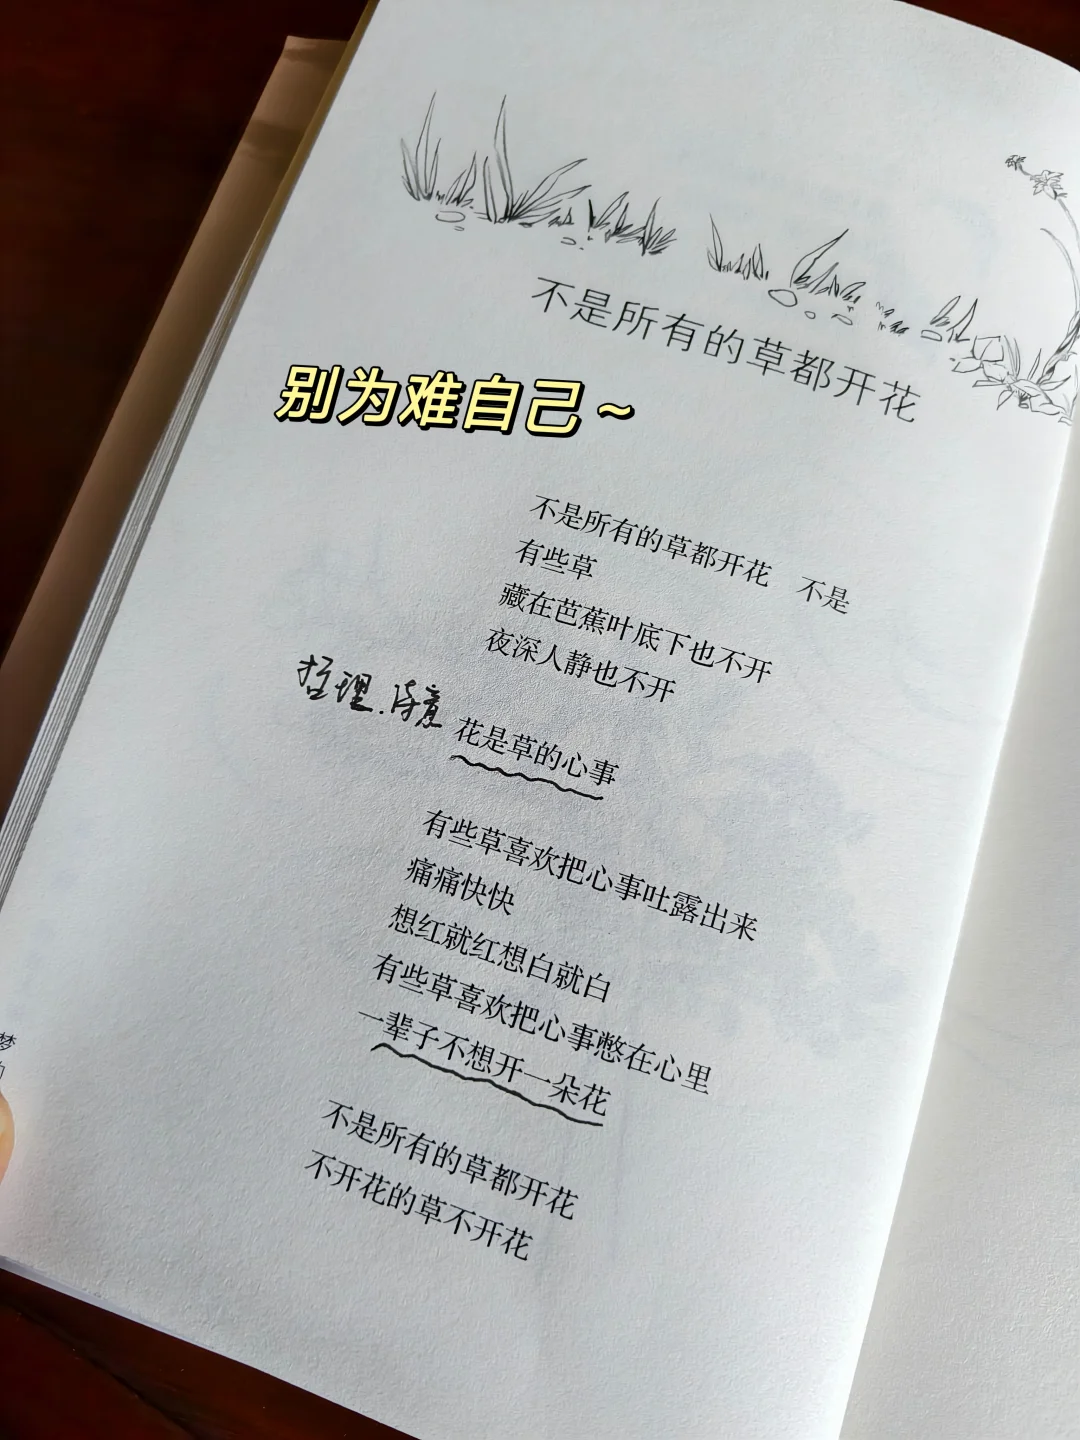 不是所有的草都开花
别为难自己~
不是所有的草都开花　不是
有些草
藏在芭蕉叶底下也不开
夜深人静也不开
哲理.诗意
花是草的心事
有些草喜欢把心事吐露出来
痛痛快快
想红就红想白就白
有些草喜欢把心事憋在心里
一辈子不想开一朵花
不是所有的草都开花
不开花的草不开花
梦